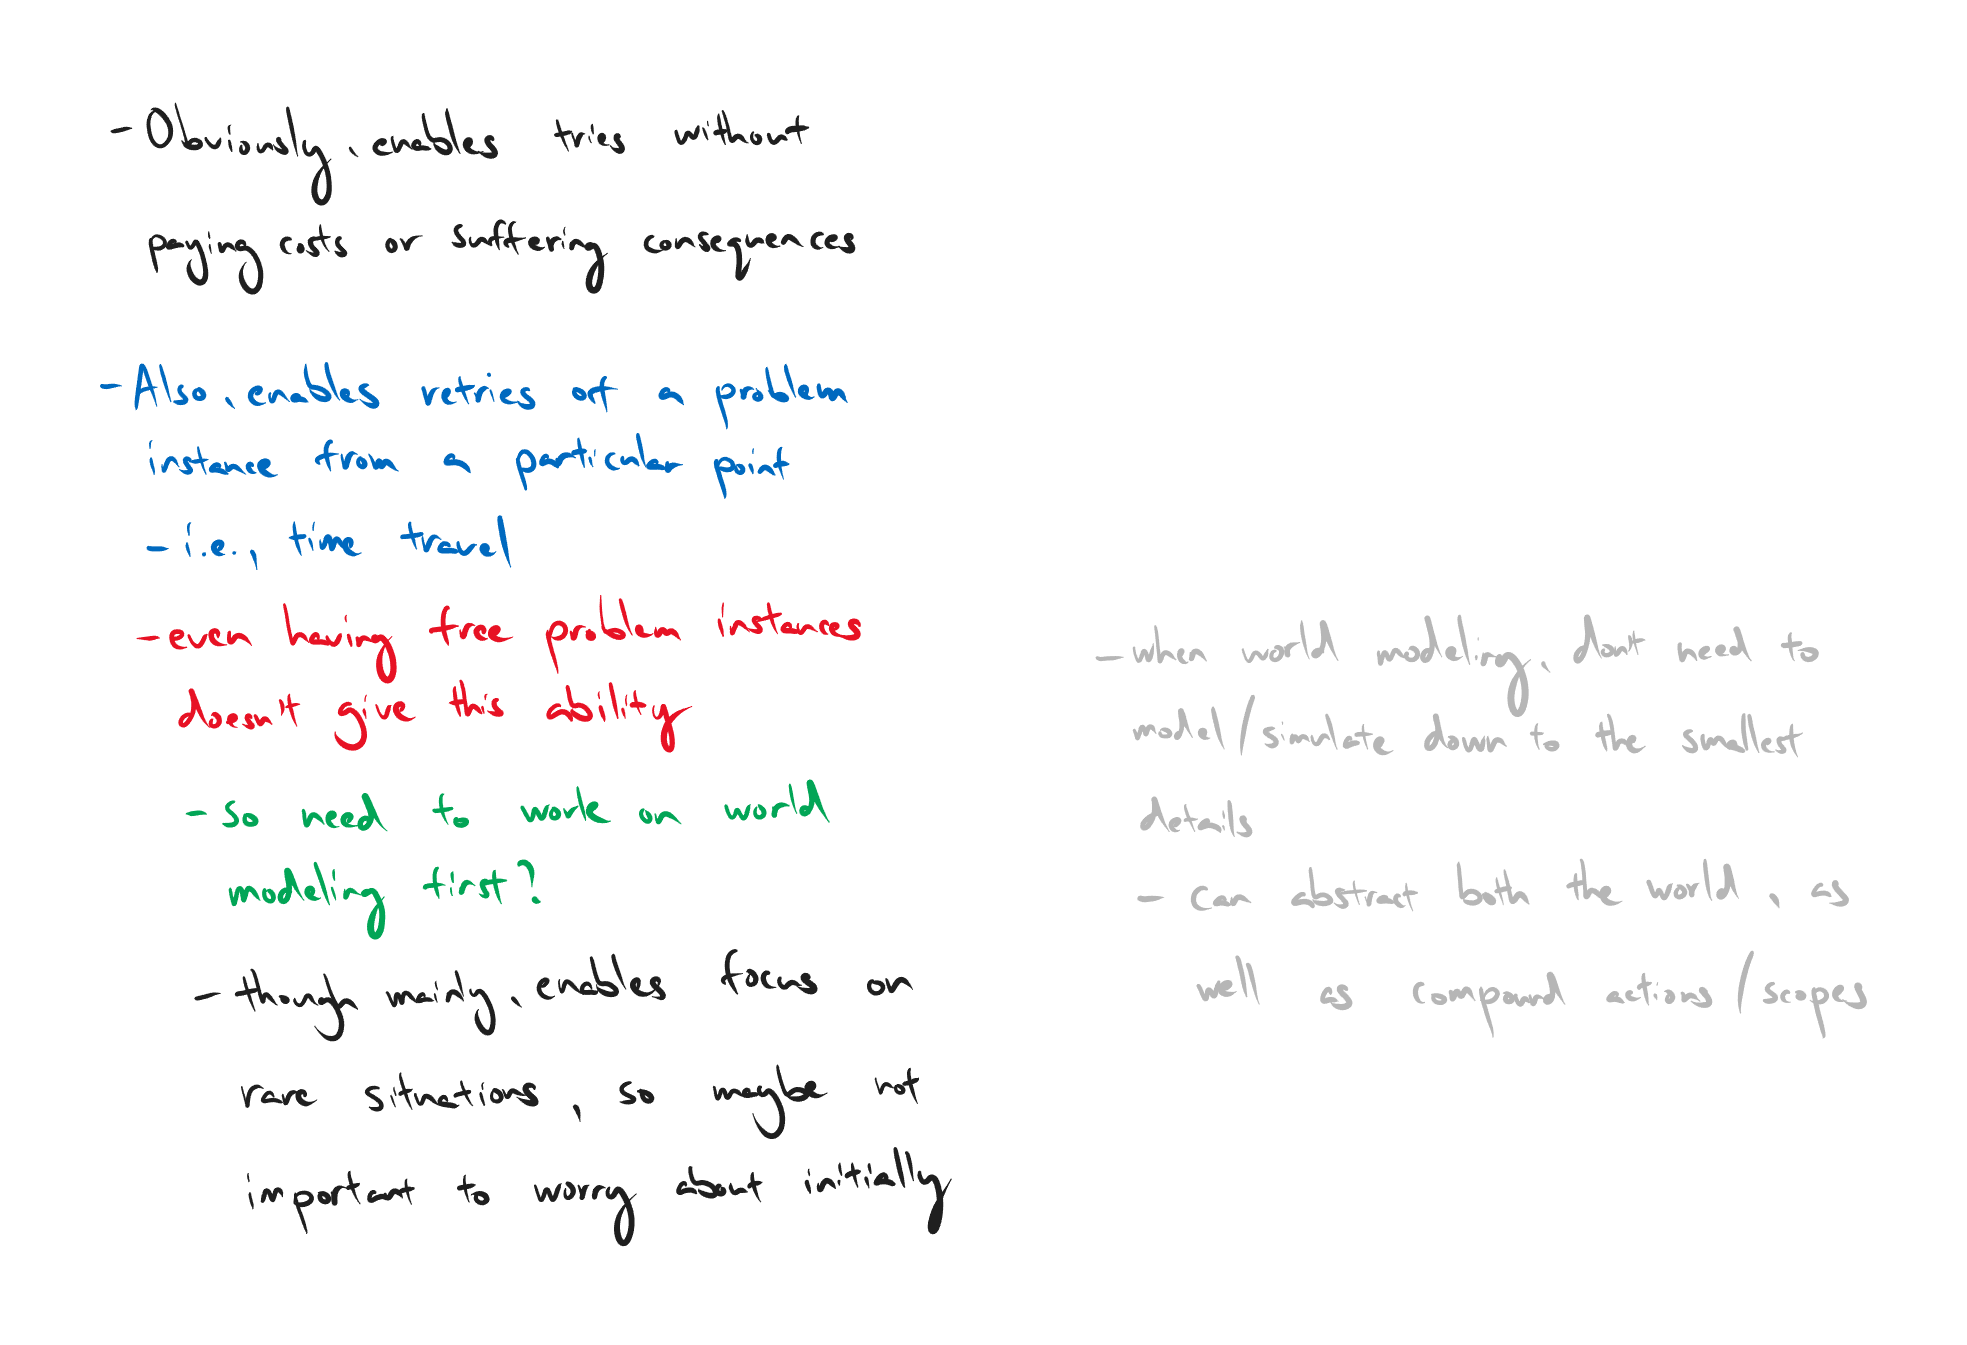 - Obviously, enables tries without
paying costs or suffering consequences
- Also, enables retries of a problem
instance from a particular point
- i.e., time travel
- even having free problem instances
doesn't give this ability
- so need to work on world
modeling first?
- though mainly, enables focus on
rare situations, so maybe not
important to worry about initially
- when world modeling, don't need to
model/simulate down to the smallest
details
- can abstract both the world, as
well as compound actions/scopes